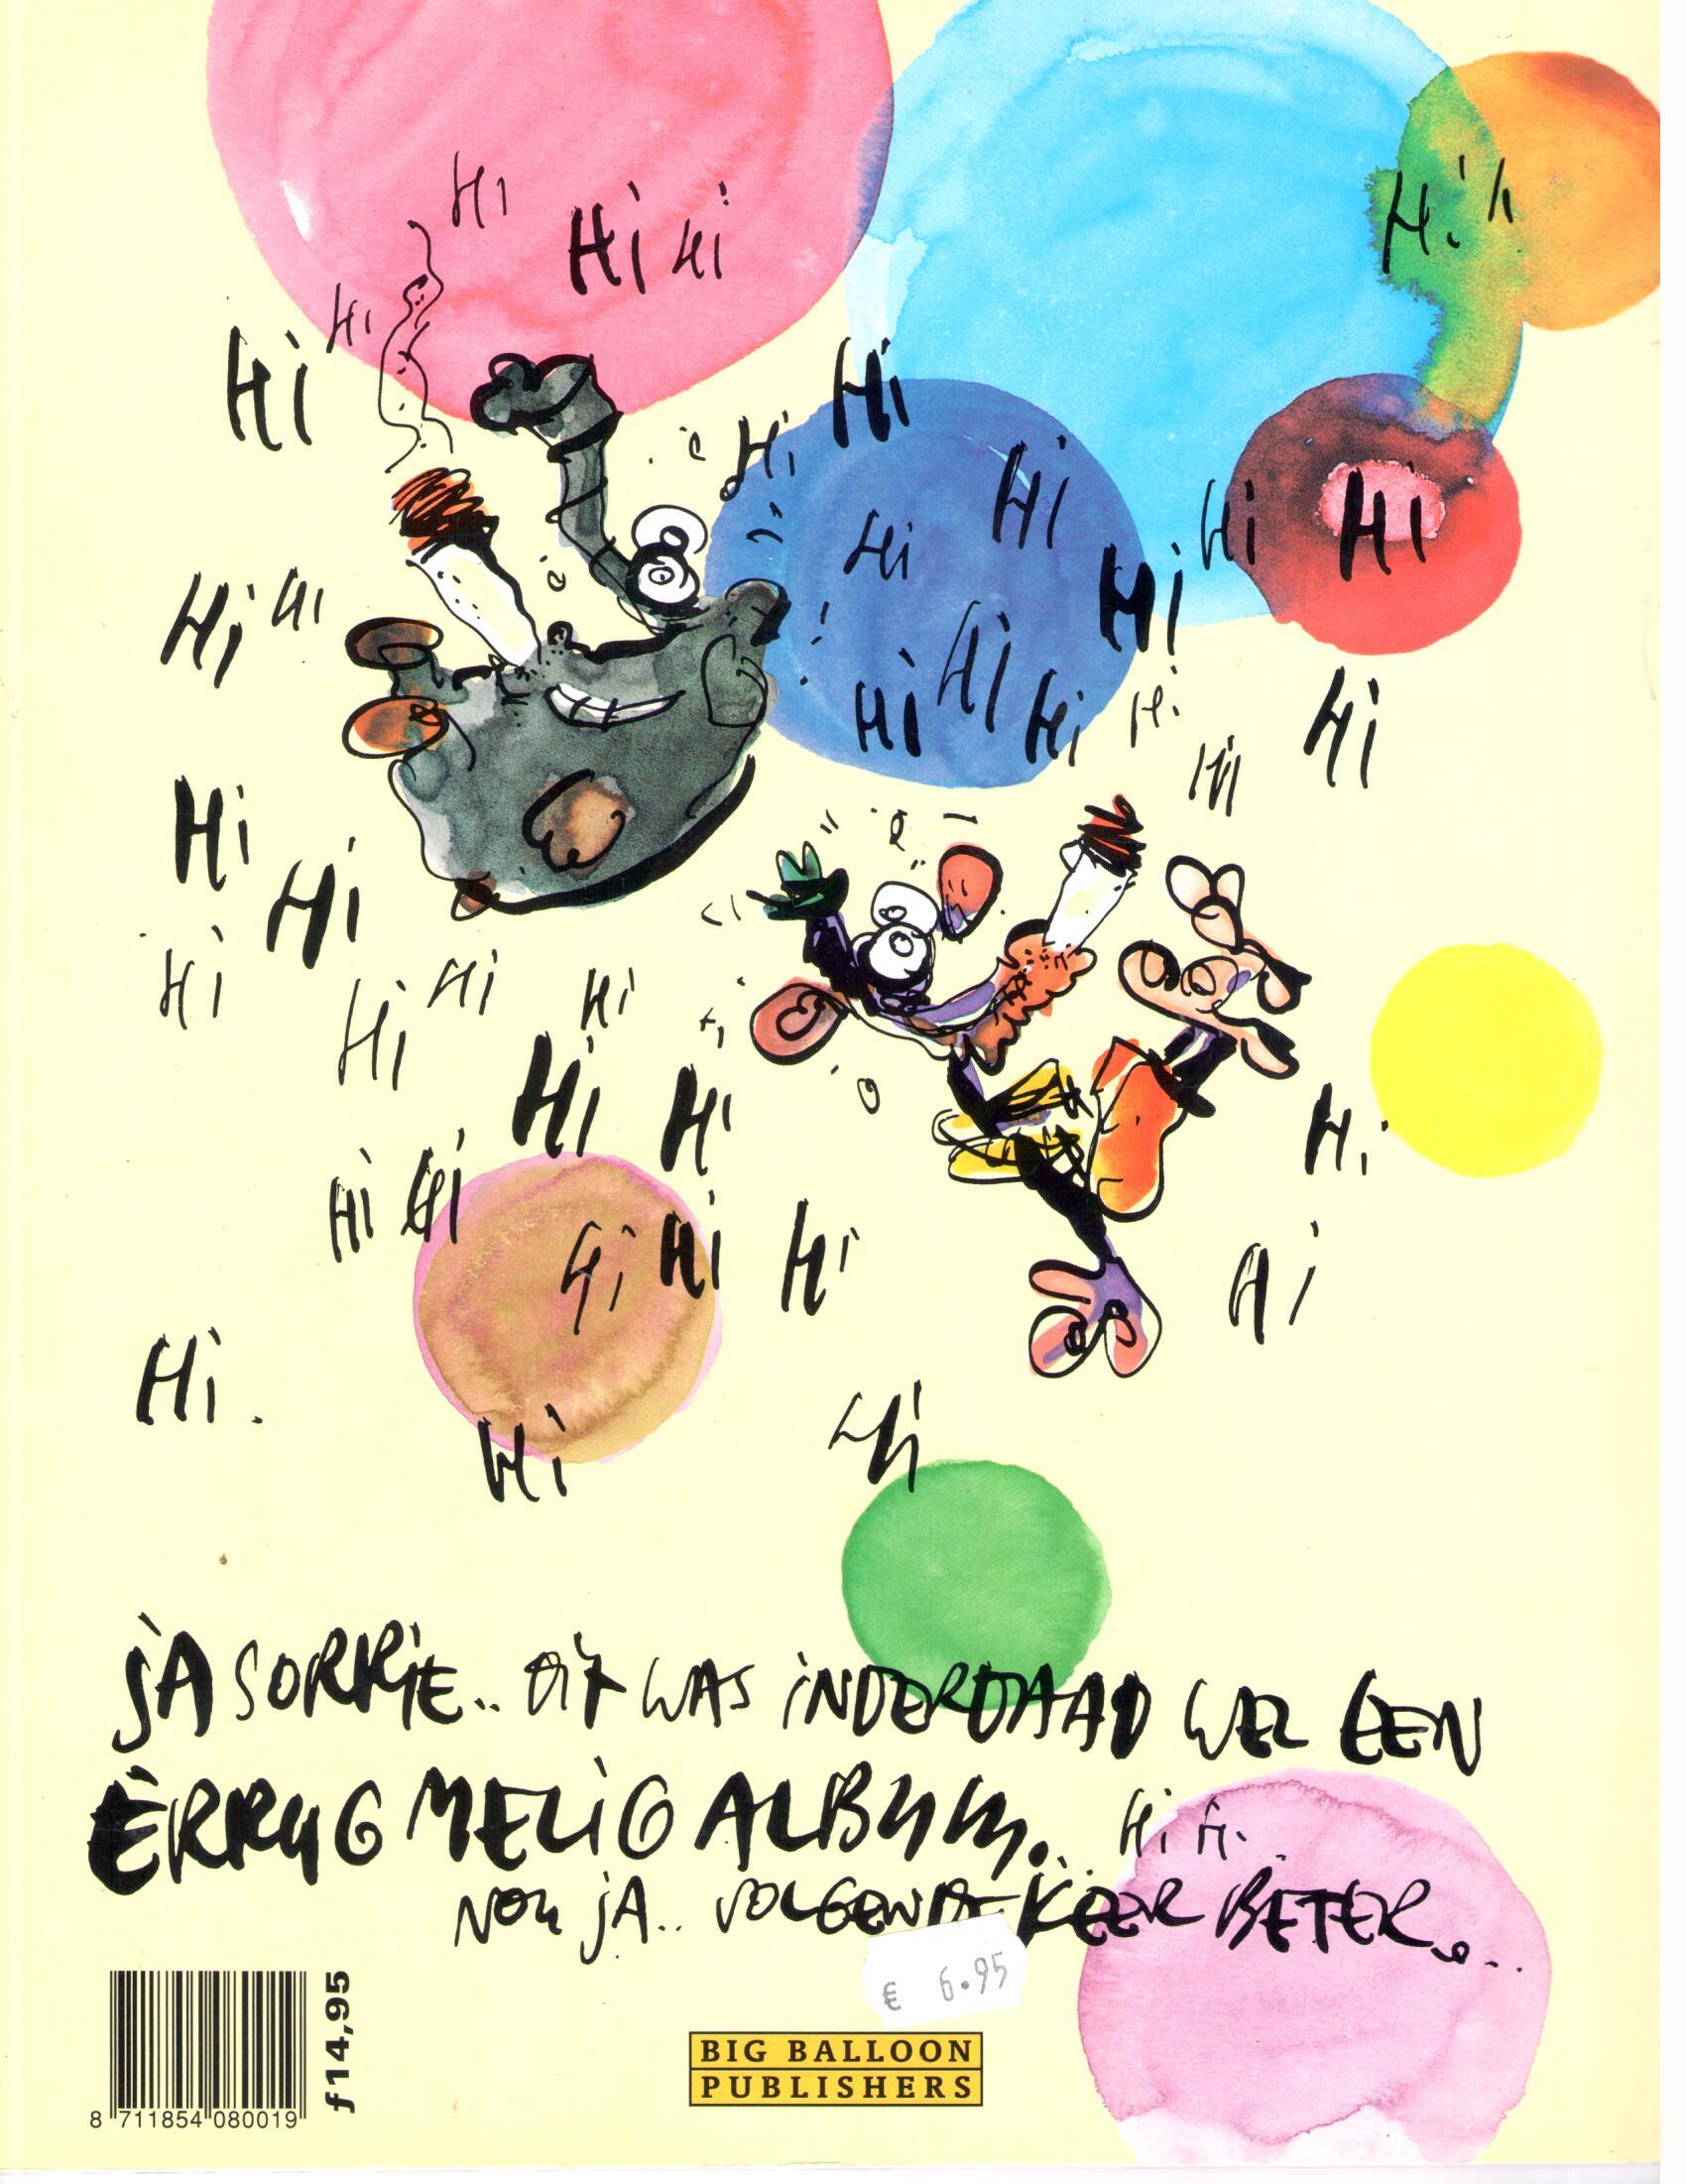 Hi
Hi Hi
Hi
Hi
Hi
Hi
Hi
Hi
Hi
Hi
Hi
Hi
Hi Hi
Hi
Hi
Hi Hi
Hi
Hi
Hi
Hi
Hi
Hi
Hi
Hi Hi
Hi
Hi
Hi
Hi
Hi Hi
Hi Hi
Hi
Hi
Hi
Hi.
Hi
Hi
JA SORRIE.. DIT WAS INDERDAAD WEL EEN
ERRUG MELIG ALBUM. Hi Hi.
NOU JA.. VOLGENDE KEER BETER...
€ 6.95
f14,95
BIG BALLOON
PUBLISHERS
8 711854 080019